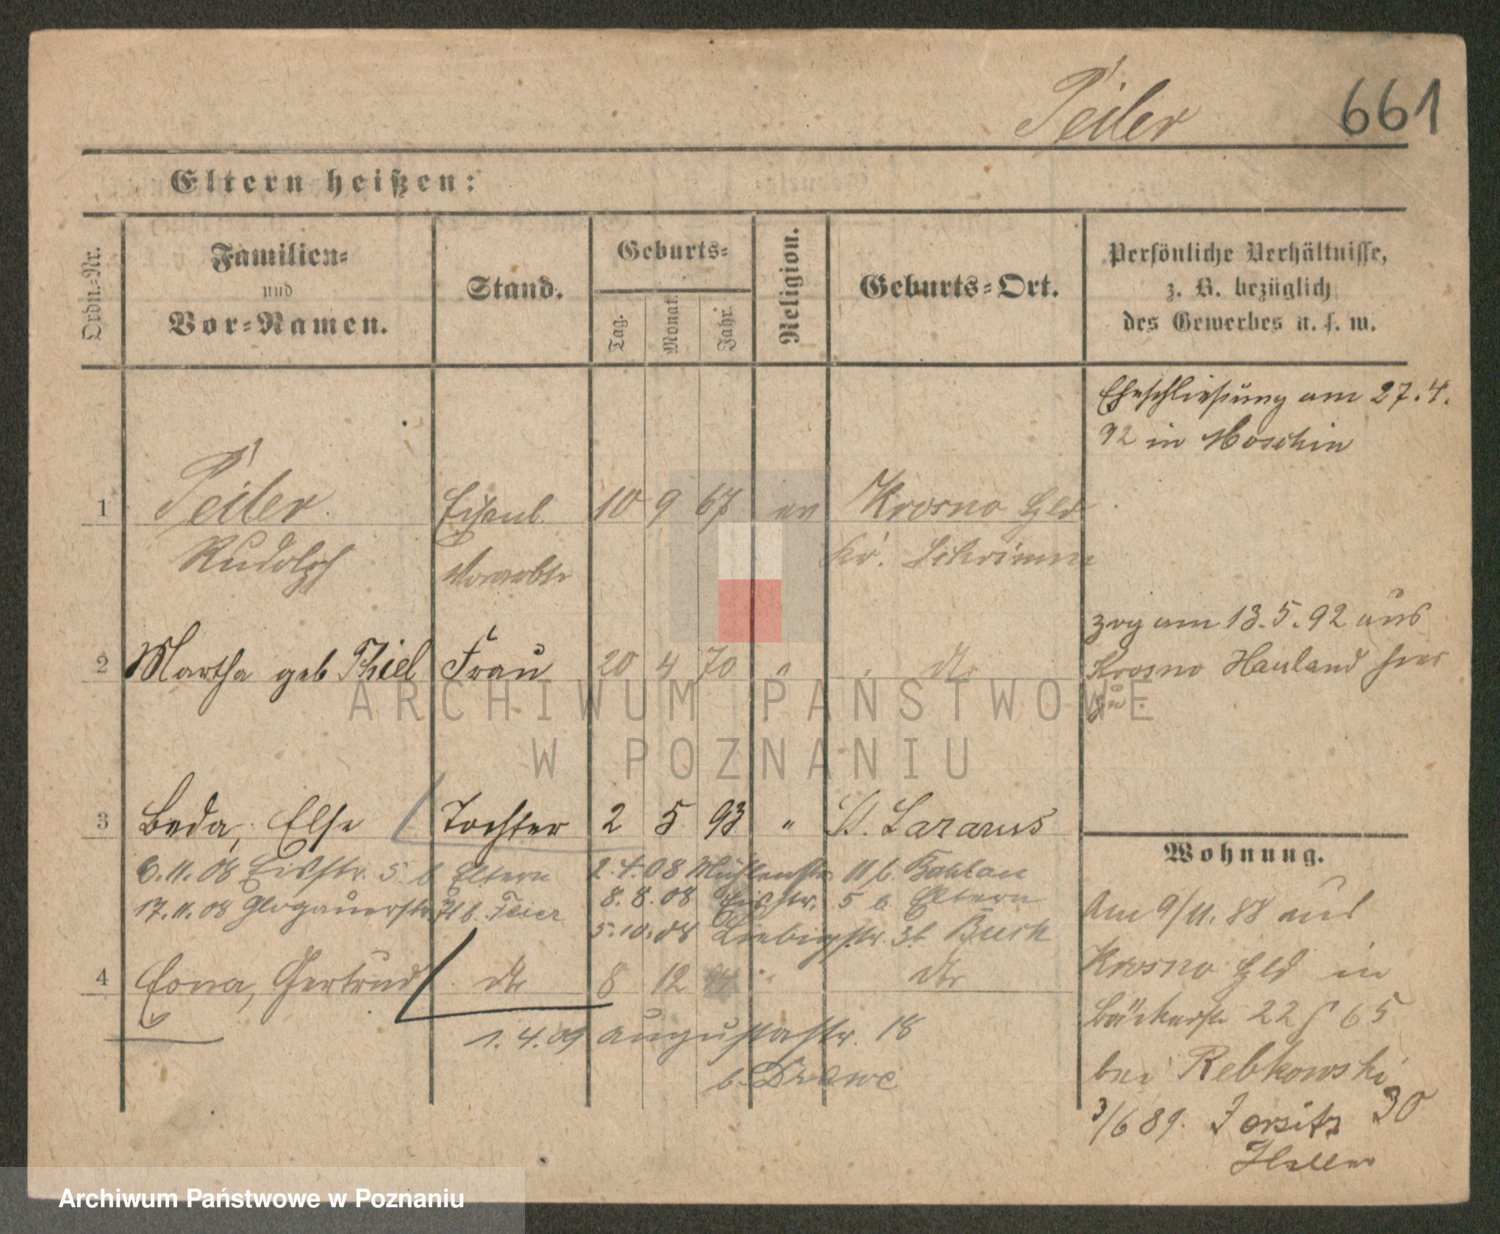 Peiler 661
Eltern heißen:
Ordn.-Nr.
Familien-
und
Vor-Namen.
Stand.
Geburts-
Tag.
Monat.
Jahr.
Religion.
Geburts-Ort.
Persönliche Verhältnisse,
z. B. bezüglich
des Gewerbes u. s. w.
Eheschließung am 27.4.
92 in Moschin
1 Peiler Eisenb. 10 9 67 ev Krosno Hld
Rudolph Vorarbtr Kr. Schrimm
zog am 13.5.92 aus
2 Martha geb Thiel Frau 20 4 70 " dto
Krosno Hauland hier
zu.
3 Beda, Else Tochter 2 5 93 " St. Lazarus
6.11.08 Eichstr. 5. b Eltern 2.4.08 Mühlenstr. 11 b.
17.11.08 Glogauerstr. b. 8.8.08 Eichstr. 5 b Eltern
5.10.08 Liebigstr. 3 b Buck
4 Gertrud dto 8 12 " dto
1.4.09 Augustastr. 18
b.
Wohnung.
Am 9/11. 88 aus
Krosno Hld in
Bäckerstr 22 65
bei Rebkowski
3/6 89. Jersitz 30
Heller
ARCHIWUM PAŃSTWOWE
W POZNANIU
Archiwum Państwowe w Poznaniu